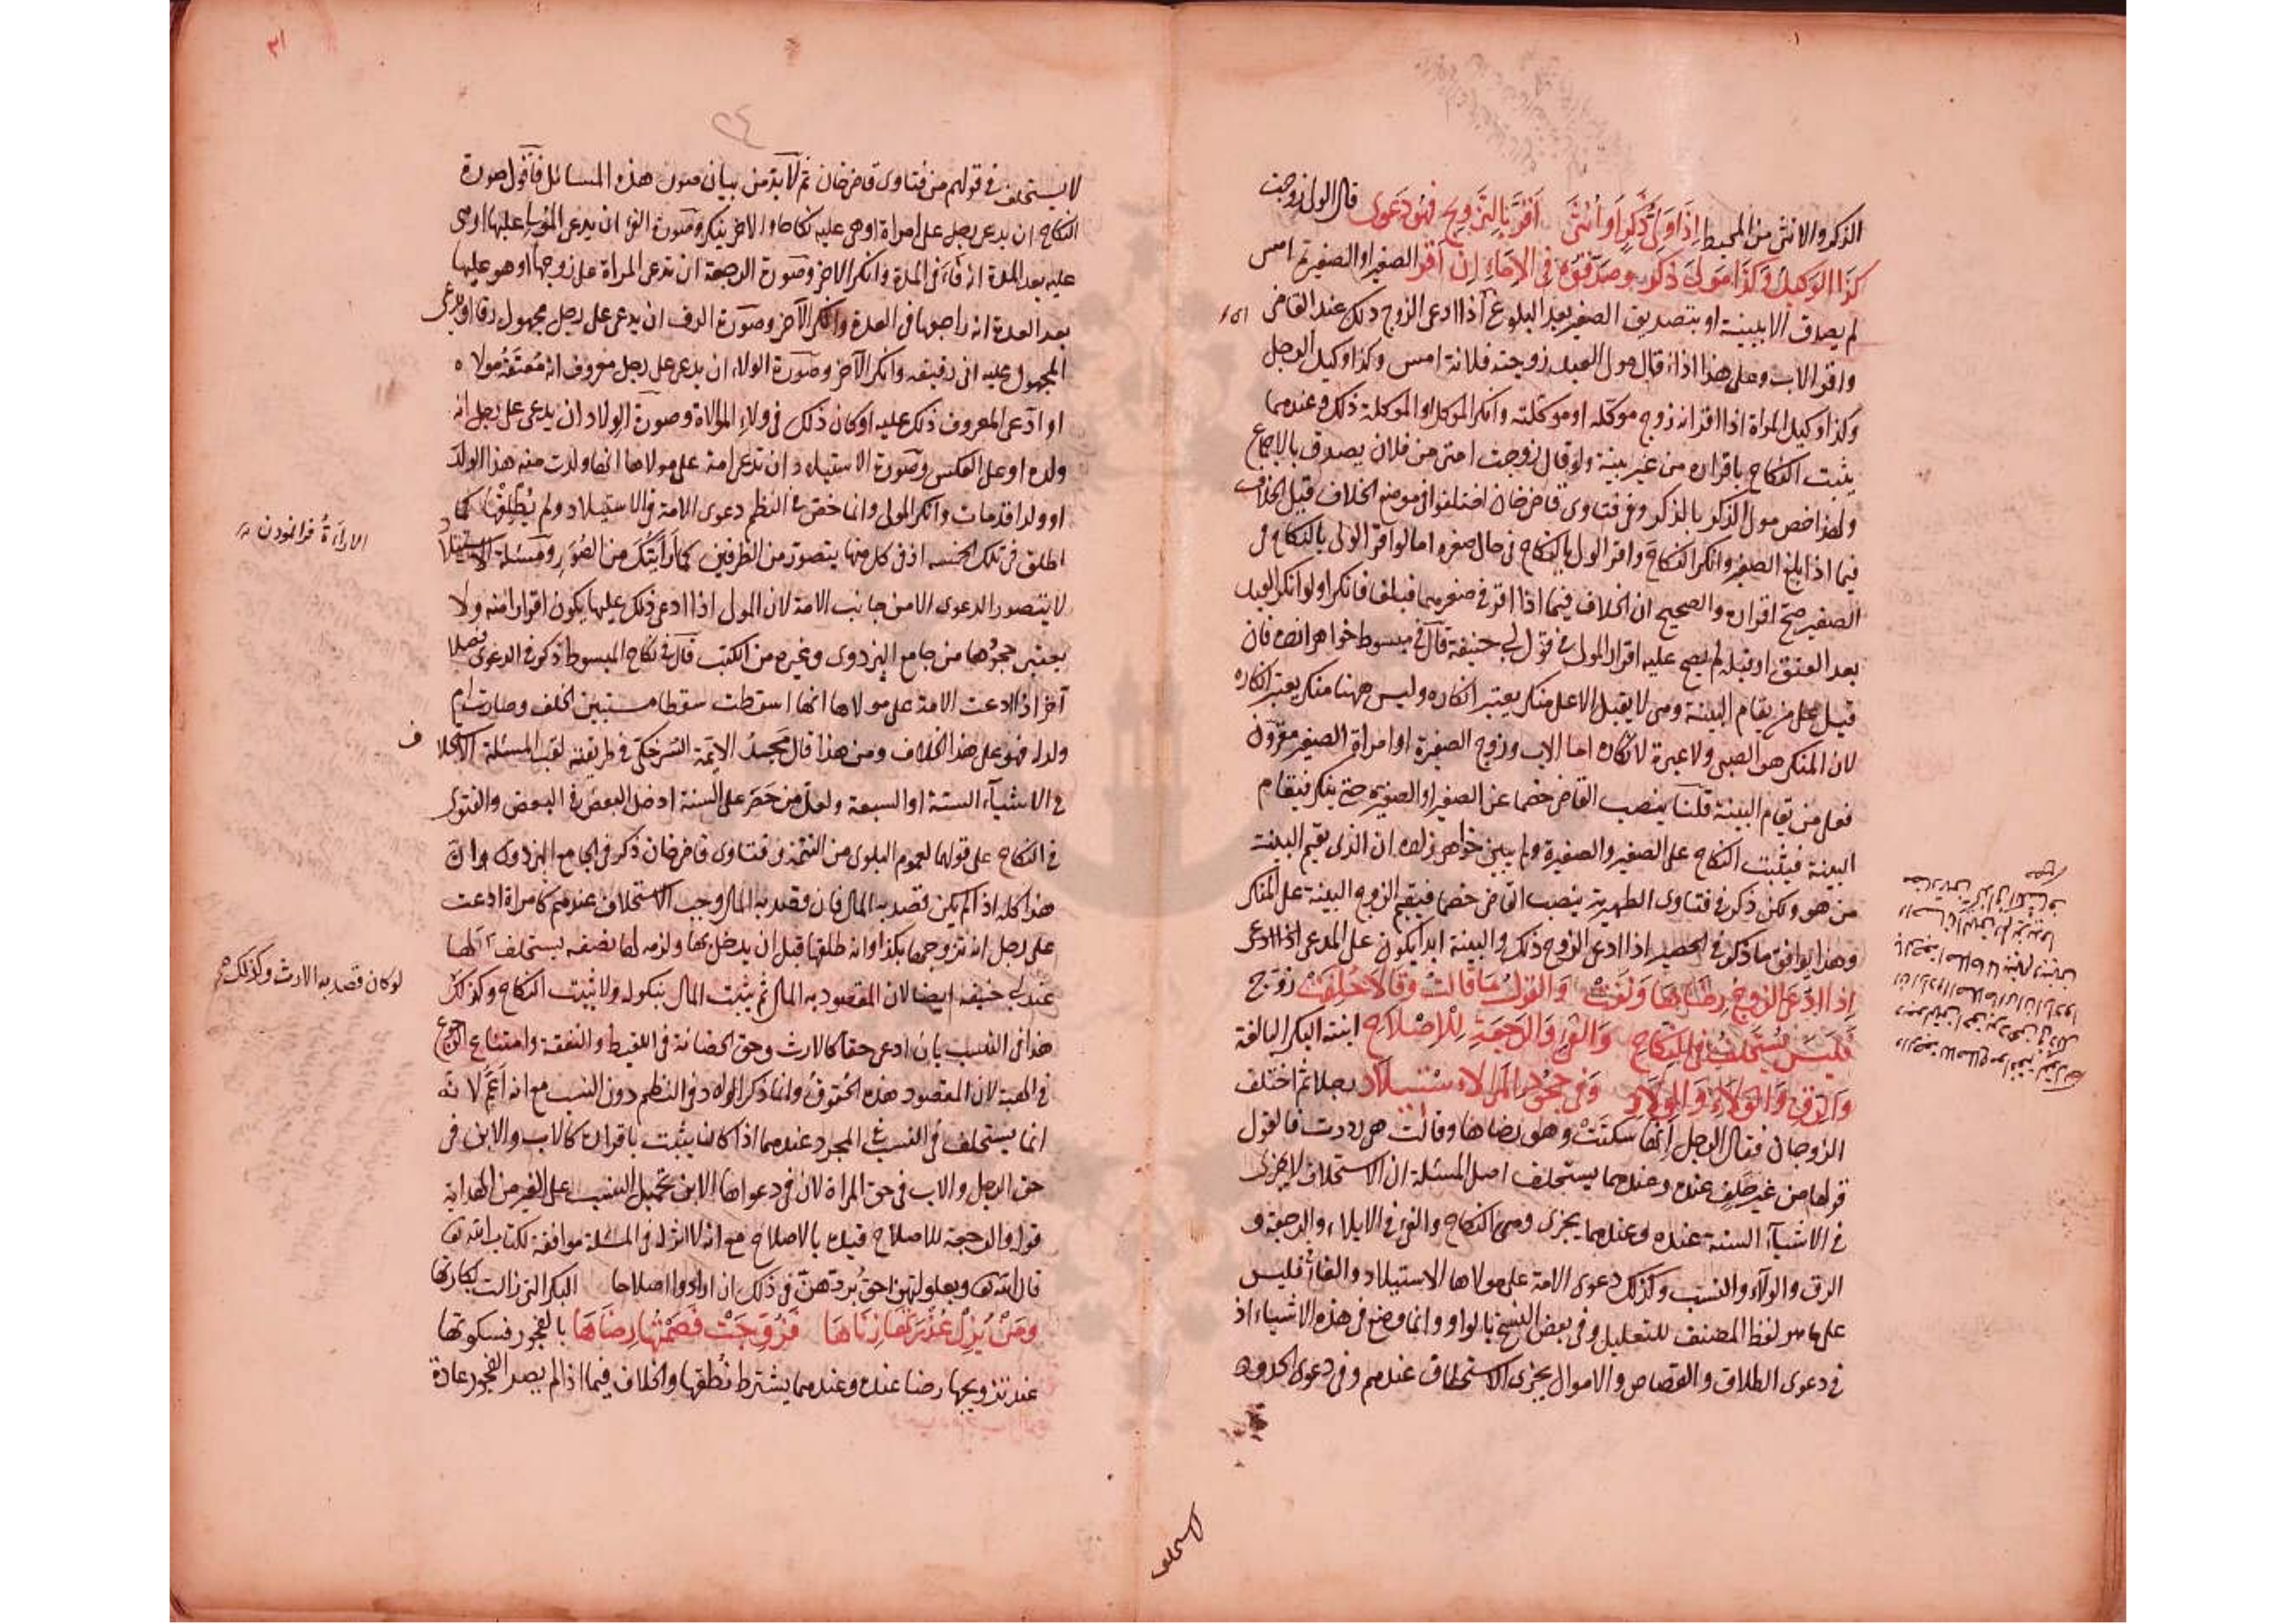 الذكر والانثى من المحيط اِذَا وَلِيُّ ذَكَرٍ اَوْ اُنْثَى اَقَرَّ بِالتَّزْوِيجِ فَهْوَ دَعْوَى قال الولى زوجت
كَذَا الوَكِيلُ وَكَذَا مَوْلَى ذَكَرْ وصَدَّقُوهُ فِى الاِمَاءِ اِنْ اَقَرّ الصغير او الصغيرة امس
لم يصدق الا ببينة او بتصديق الصغير بعد البلوغ اذا ادعى الزوج ذلك عند القاضى
واقر الاب وعلى هذا اذا قال مولى العبد زوجته فلانة امس وكذا وكيل الرجل
وكذا وكيل المراة اذا اقر انه زوج موكله او موكلته وانكر الموكل او الموكلة ذلك وعندهما
يثبت النكاح باقراره من غير بينة ولو قال زوجت امتى من فلان يصدق بالاجماع
ولهذا خص مولى الذكر بالذكر وفى فتاوى قاضى خان اختلفوا فى موضع الخلاف قيل الخلاف
فيما اذا بلغ الصغير وانكر النكاح واقر الولى بالنكاح فى حال صغره اما لو اقر الولى بالنكاح فى
الصغير صح اقراره والصحيح ان الخلاف فيما اذا اقر فى صغرهما فبلغا فانكرا ولو انكر العبد
بعد العتق او قبله لم يصح عليه اقرار المولى فى قول ابى حنيفة قال فى مبسوط خواهرزاده فان
قيل على من يقام البينة وهى لا يقبل الا على منكر يعتبر انكاره وليس ههنا منكر يعتبر انكاره
لان المنكر هو الصبى ولا عبرة لانكاره اما الاب وزوج الصغيرة او امراة الصغير مقرون
فعلى من تقام البينة قلنا ينصب القاضى خصما عن الصغير او الصغيرة حتى ينكر فيقام
البينة فيثبت النكاح على الصغير والصغيرة ولم يبين خواهرزاده ان الذى يقيم البينة
من هو ولكن ذكر فى فتاوى الظهيرية ينصب القاضى خصما فيقيم الزوج البينة على المنكر
وهذا يوافق ما ذكر فى الحصر اذا ادعى الزوج ذلك والبينة ابدا يكون على المدعى اذا ادعى
اِذَا ادَّعَى الزَّوْجُ رِضَاهَا وَنَفَتْ وَالقَوْلُ مَا قَالَتْ وَقَالَا حُلِّفَتْ زوج
فَلَيْسَ يُسْتَحْلَفُ فِى النِّكَاحِ وَالفَىْءِ وَالرَّجْعَةِ لِلْاِصْلَاحِ ابنته البكر البالغة
وَالرِّقِّ وَالوَلَاءِ وَالوِلَادِ وَفِى جُحُودِ المَرْءِ لِاسْتِيلَادِ رجلا ثم اختلف
الزوجان فقال الرجل انها سكتت وهو رضاها وقالت هى رددت فالقول
قولها من غير حلف عنده وعندهما يستحلف اصل المسئلة ان الاستحلاف لا يجرى
فى الاشياء الستة عنده وعندهما يجرى وهى النكاح والفئ فى الايلاء والرجعة و
الرق والولاء والنسب وكذلك دعوى الامة على مولاها الاستيلاد والفاء فليس
على ما هو لفظ المصنف للتعليل وفى بعض النسخ بالواو وانما وضع فى هذه الاشياء اذ
فى دعوى الطلاق والقصاص والاموال يجرى الاستحلاف عندهم وفى دعوى الحدود
لا يستحلف
٣١
لا يستحلف فى قولهم من فتاوى قاضى خان ثم لا بد من بيان صور هذه المسائل فاقول صورة
النكاح ان يدعى رجل على امراة او هى عليه نكاحا والاخر ينكر وصورة الفئ ان يدعى المولى عليها او هى
عليه بعد المدة انه فاء فى المدة وانكر الاخر وصورة الرجعة ان تدعى المراة على زوجها او هو عليها
بعد العدة انه راجعها فى العدة وانكر الآخر وصورة الرق ان يدعى على رجل مجهول رقا او يدعى
المجهول عليه انى رقيقه وانكر الآخر وصورة الولاء ان يدعى على رجل معروف انه مُعتَقه مولاه
او ادعى المعروف ذلك عليه او كان ذلك فى ولاء الموالاة وصورة الولاد ان يدعى على رجل انه
ولده او على العكس وصورة الاستيلاد ان تدعى امة على مولاها انها ولدت منه هذا الولد
او ولدا قد مات وانكر المولى وانما خص فى النظم دعوى الامة فى الاستيلاد ولم يُطْلِقْها كما
اطلق فى تلك الخمسه اذ فى كل منها يتصور من الطرفين كما رايتك من الصُوَر ومسئلة الاستيلاد
لا يتصور الدعوى الا من جانب الامة لان المولى اذا ادعى ذلك عليها يكون اقرارا منه ولا
يعتبر جحودها من جامع البزدوى وغيره من الكتب قال فى نكاح المبسوط ذكر فى الدعوى فصلا
آخر اذا ادعت الامة على مولاها انها اسقطت سقطا مستبين الخلق وصارت ام
ولد له فهو على هذا الخلاف ومن هذا قال مجد الائمة السرخكتى فى طريقته لقب المسئلة الاستحلاف
فى الاشياء الستة او السبعة ولعل من حَصَر على الستة ادخل البعض فى البعض والفتوى
فى النكاح على قولهما لعموم البلوى من التتمة وفتاوى قاضى خان ذكر فى الجامع البزدوى وان
هذا كله اذا لم يكن قصد به المال فان قصد به المال وجب الاستحلاف عندهم كامراة ادعت
على رجل انه تزوجها بكذا وانه طلقها قبل ان يدخل بها ولزمه لها نصفه يستحلف لها
عند ابى حنيفه ايضا لان المقصود به المال ثم يثبت المال بنكوله ولا يثبت النكاح وكذلك
هذا فى النسب بان ادعى حقا كالارث وحق الحضانة فى اللقيط والنفقة وامتناع الرجوع
فى الهبة لان المقصود هذه الحقوق وانما ذكر الولاد فى النظم دون النسب مع انه اعم لانه
انما يستحلف فى النسب المجرد عندهما اذا كان يثبت باقراره كالاب والابن فى
حق الرجل والاب فى حق المراة لان فى دعواها الابن تحميل النسب على الغير من الهداية
قوله والرجعة للاصلاح قيده بالاصلاح مع انه لا اثر له فى المسئلة موافقة لكتاب الله تعالى
قال الله تعالى وبعولتهن احق بردهن فى ذلك ان ارادوا اصلاحا البكر التى زالت بكارتها
وَمَنْ يُزِلْ عُذْرَتَهَا زِنَاهَا فَزُوِّجَتْ فَصَمْتُهَا رِضَاهَا بالفجور فسكوتها
عند تزويجها رضا عنده وعندهما يشترط نُطْقها والخلاف فيما اذا لم يصر الفجور عادة
الاراءةُ
لو كان قصد به الارث وكذلك